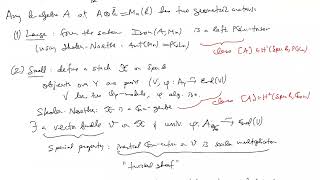 Any k-algebra A s.t. A⊗k̄ ≅ Mn(k̄) has two geometric avatars.
(1) Large: form the scheme Isom(A, Mn) is a left PGLn-torsor
(using Skolem-Noether: Aut(Mn) = PGLn)
class [A] ∈ H¹(Spec k, PGLn)
(2) Small: define a stack X on Spec k
objects on Y are pairs (V, φ: A_Y ≅ End(V))
V loc free OY-module, φ alg. iso.
Skolem-Noether: X is a Gm-gerbe
class [X] ∈ H²(Spec k, Gm)
∃ a vector bundle V on X + univ. φ: A_X ≅ End(V)
Special property: inertial Gm-action on V is scalar multiplication
"twisted sheaf"